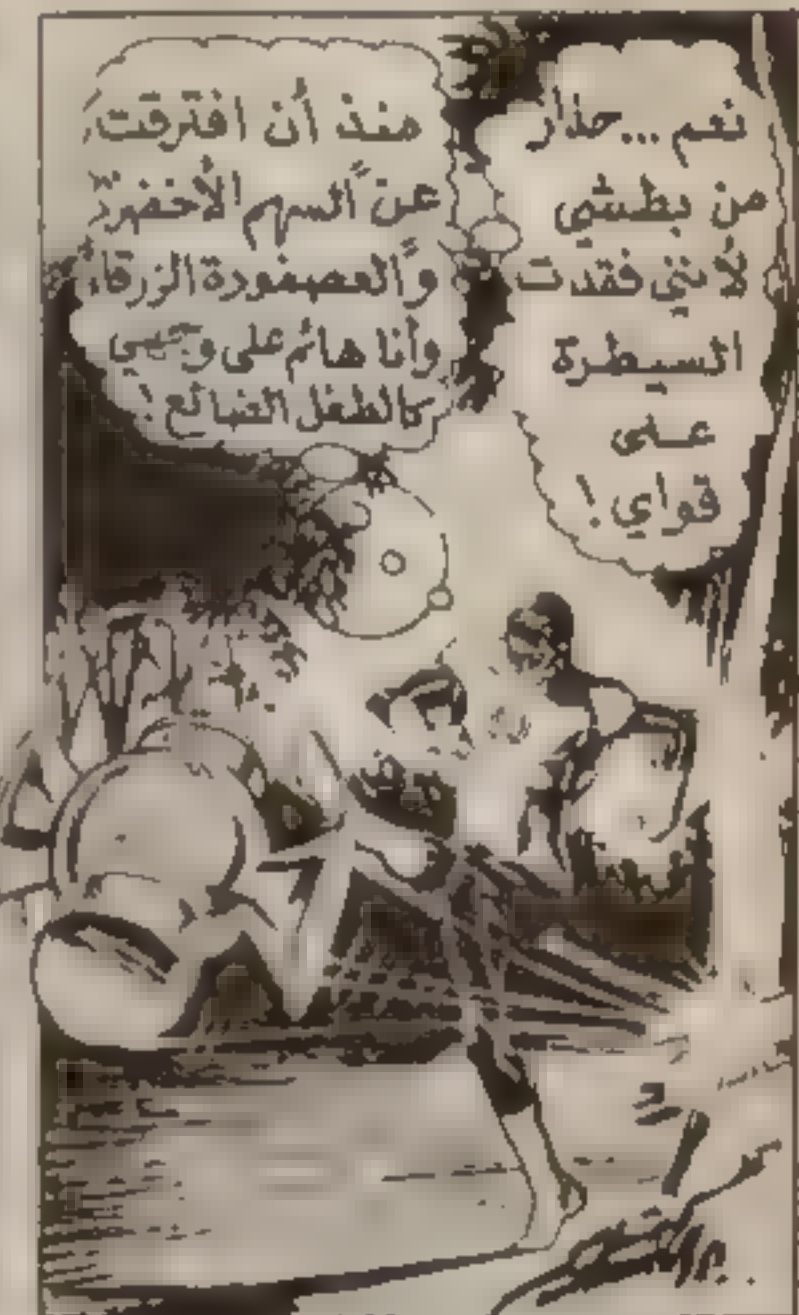 نعم ...حذار
من بطشي
لأنني فقدت
السيطرة
على
قواي !
منذ أن افترقت
عن "السهم الأخضر"
و"العصفورة الزرقاء"
وأنا هائم على وجهي
كالطفل الضائع !